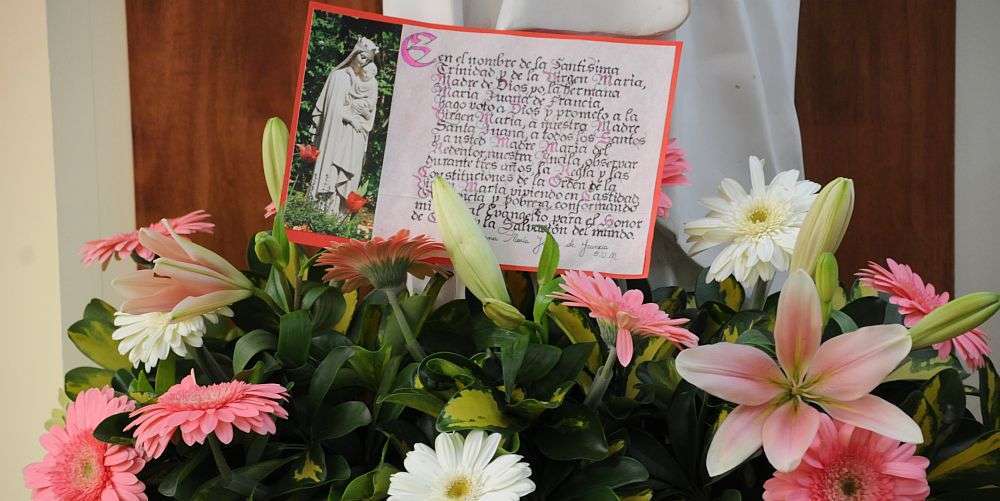 En el nombre de la Santísima
Trinidad y de la Virgen María,
Madre de Dios yo la hermana
María Juana de Francia,
hago voto a Dios y prometo a la
Virgen María, a nuestra Madre
Santa Juana, a todos los Santos
y a usted Madre María del
Redentor, nuestra Ancila, observar
durante tres años la Regla y las
Constituciones de la Orden de la
María, viviendo en Castidad
y pobreza, conformando
mi al Evangelio, para el Honor
de y la Salvación del mundo.
María de Francia
O.V.M.